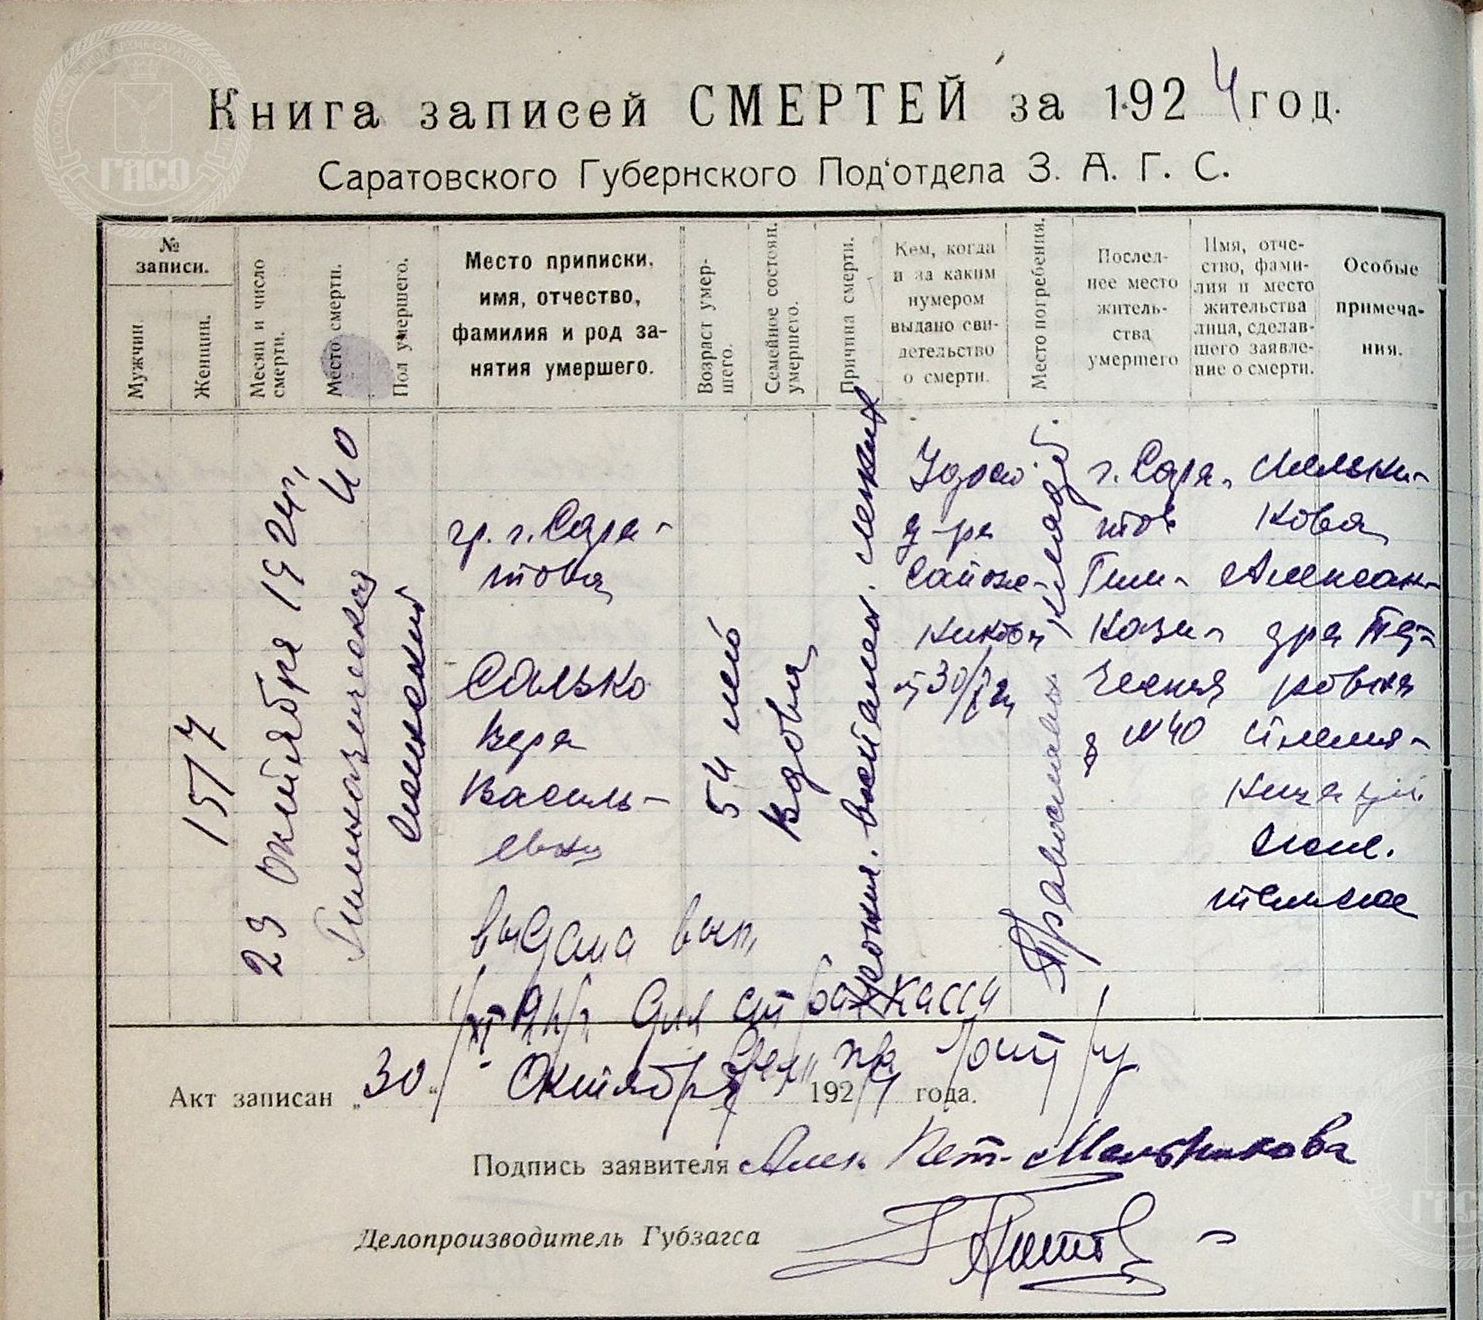 Книга записей СМЕРТЕЙ за 1924 год.
Саратовского Губернского Под'отдела З. А. Г. С.
№
записи.
Мужчин.
Женщин.
Месяц и число
смерти.
Место смерти.
Пол умершего.
Место приписки,
имя, отчество,
фамилия и род за-
нятия умершего.
Возраст умер-
шего.
Семейное состоян.
умершего.
Причина смерти.
Кем, когда
и за каким
нумером
выдано сви-
детельство
о смерти.
Место погребения.
Послед-
нее место
житель-
ства
умершего
Имя, отче-
ство, фами-
лия и место
жительства
лица, сделав-
шего заявле-
ние о смерти.
Особые
примеча-
ния.
1517
29 октября 1924 г.
Гимназическая 40
женский
гр. г. Сара-
това
Салько
Вера
Василь-
евна
54 лет
Вдова
воспален. легких
Православн. кладб.
г. Сара-
тов
Гим-
нази-
ческая
№ 40
Мельни-
кова
Алексан-
дра Пет-
ровна
племя-
ница
выдана вып.
для страхкассы
Акт записан „30“ Октября 1924 года.
Подпись заявителя Алек Пет. Мельникова
Делопроизводитель Губзагса
ГАСО